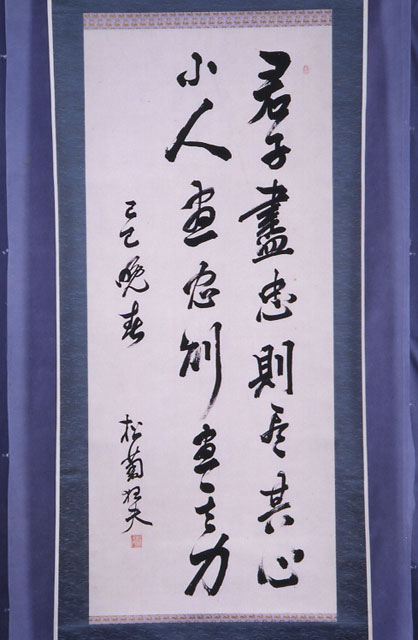 君子盡忠則盡其心
小人盡忠則盡其力
己巳晩春
松菊狂夫